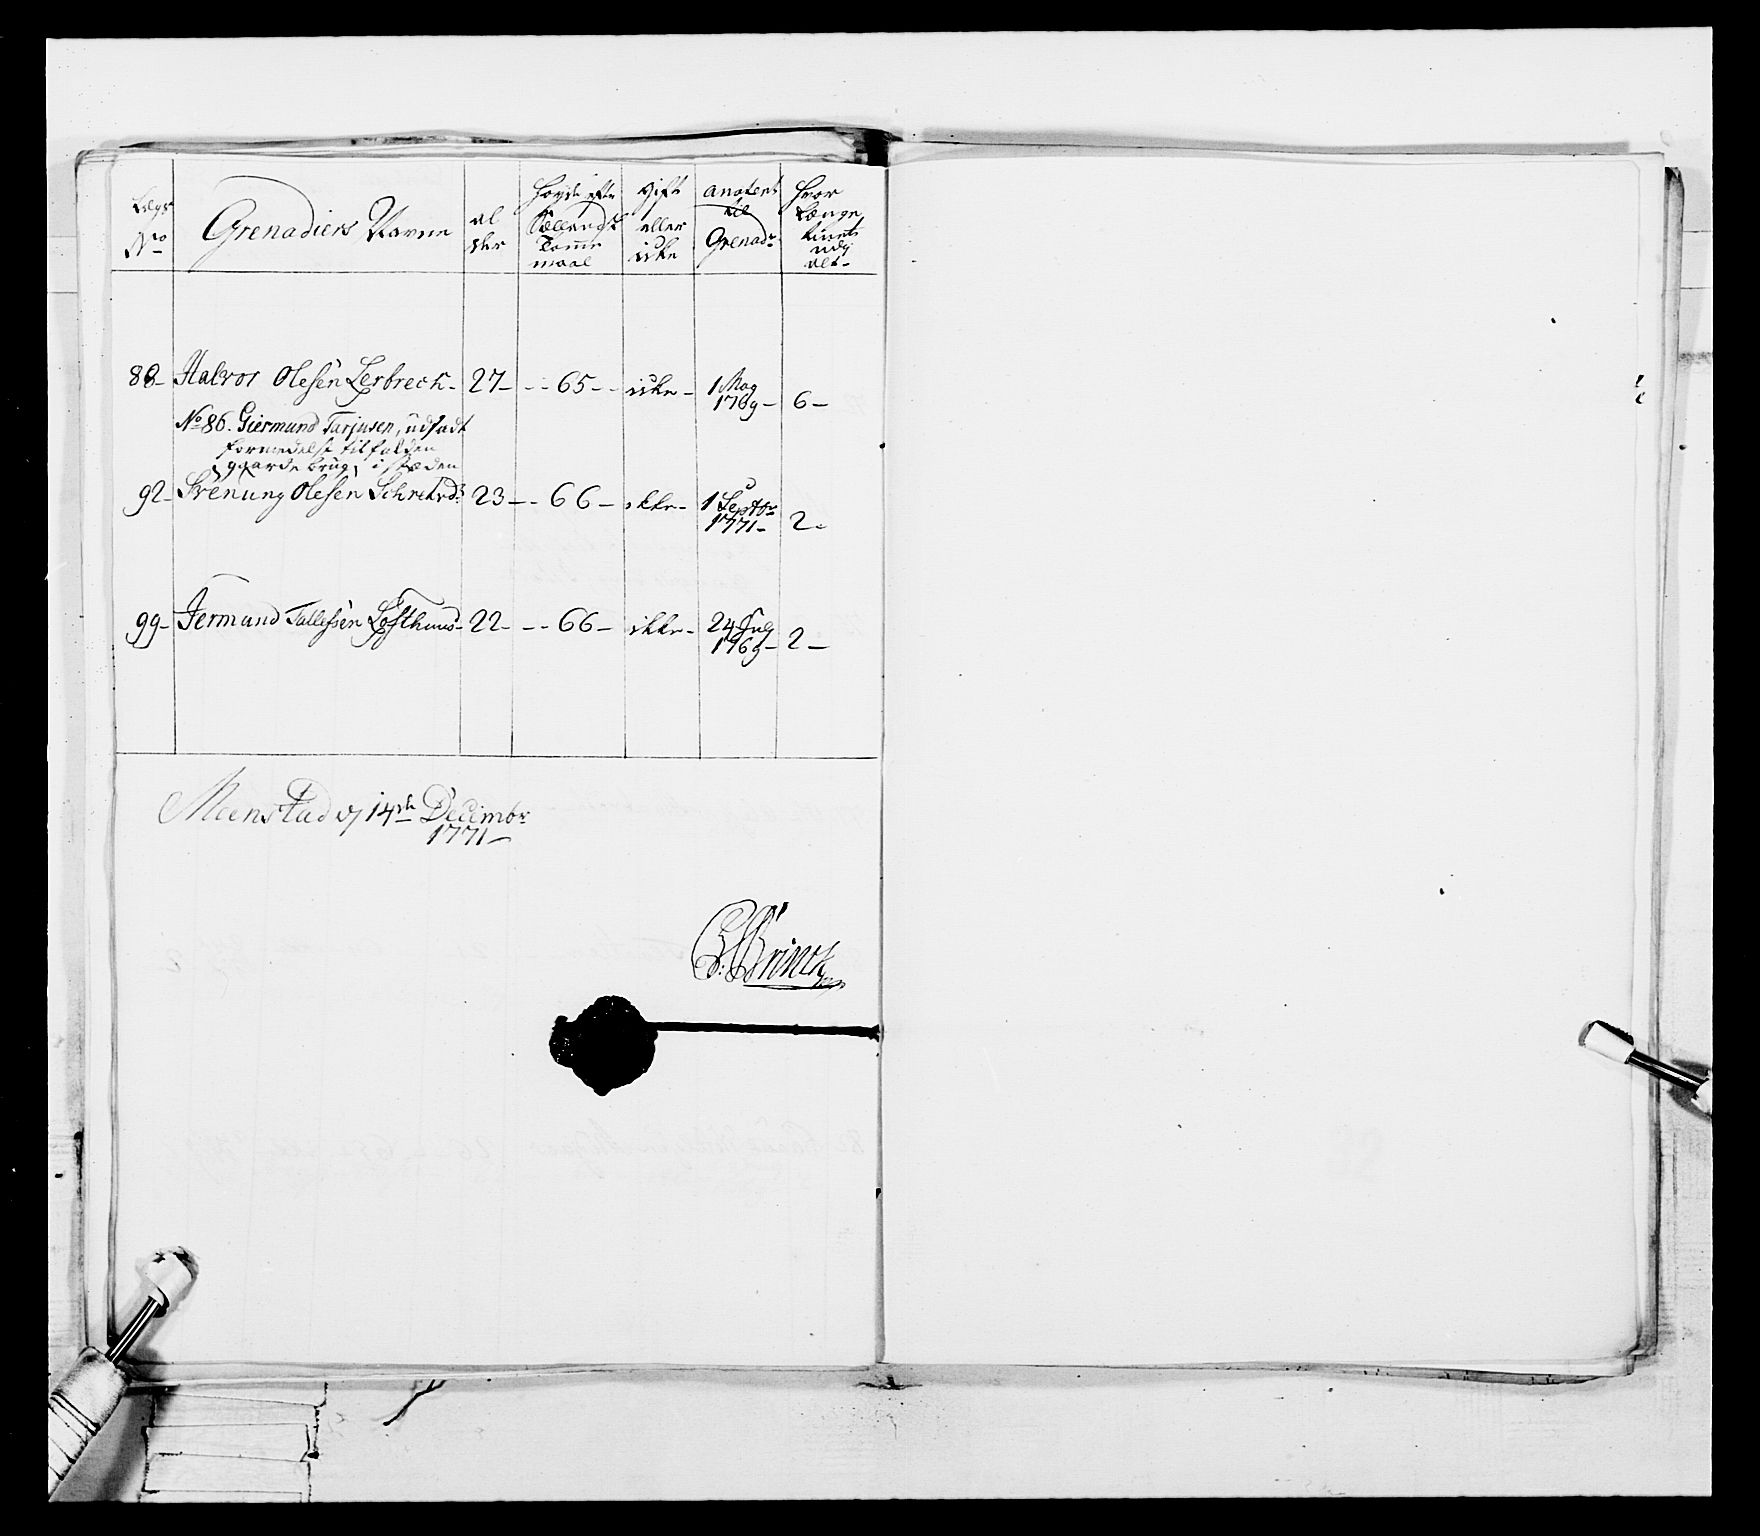 Lægs No Grenadiers Navne al der Høyde efter Sællands Tomme maal Gift eller icke anotert til Grenadr Hvor Længe tient udj alt-
88- Halvor Olesén Lerbrech- 27- -- 65 -- icke- 1 May 1769- 6-
No 86. Giermund Tarjusen, udsadt
formedelst tilfalden
gaarde brug, i stæden
92- Svenung Olesén 23- - 66- ikke- 1 Septbr 1771- 2-
99- Jermund Tallefsén Lofthuus- 22- -- 66- ikke- 24 July 1769- 2-
Meenstad d 14de Decimbr
1771-
Brinch